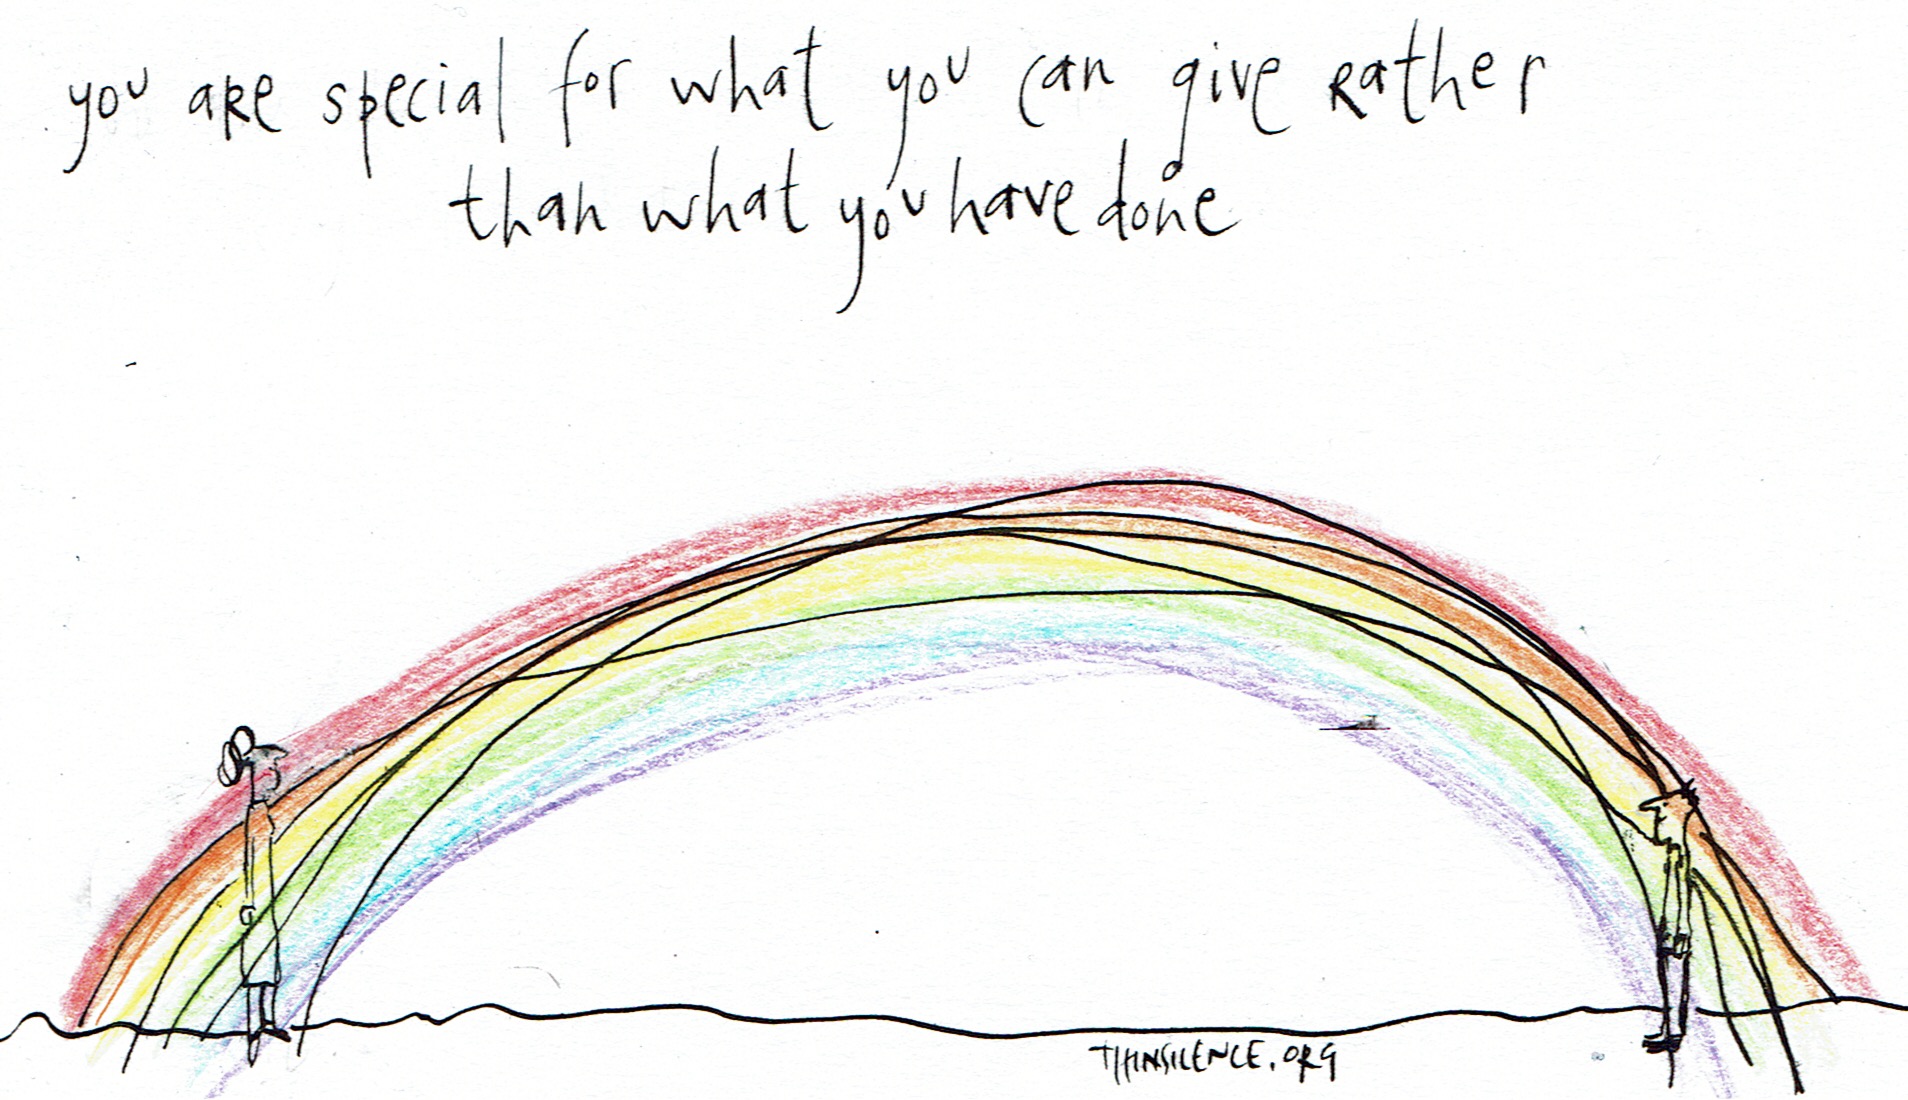 you are special for what you can give rather
than what you have done
THINSILENCE.ORG